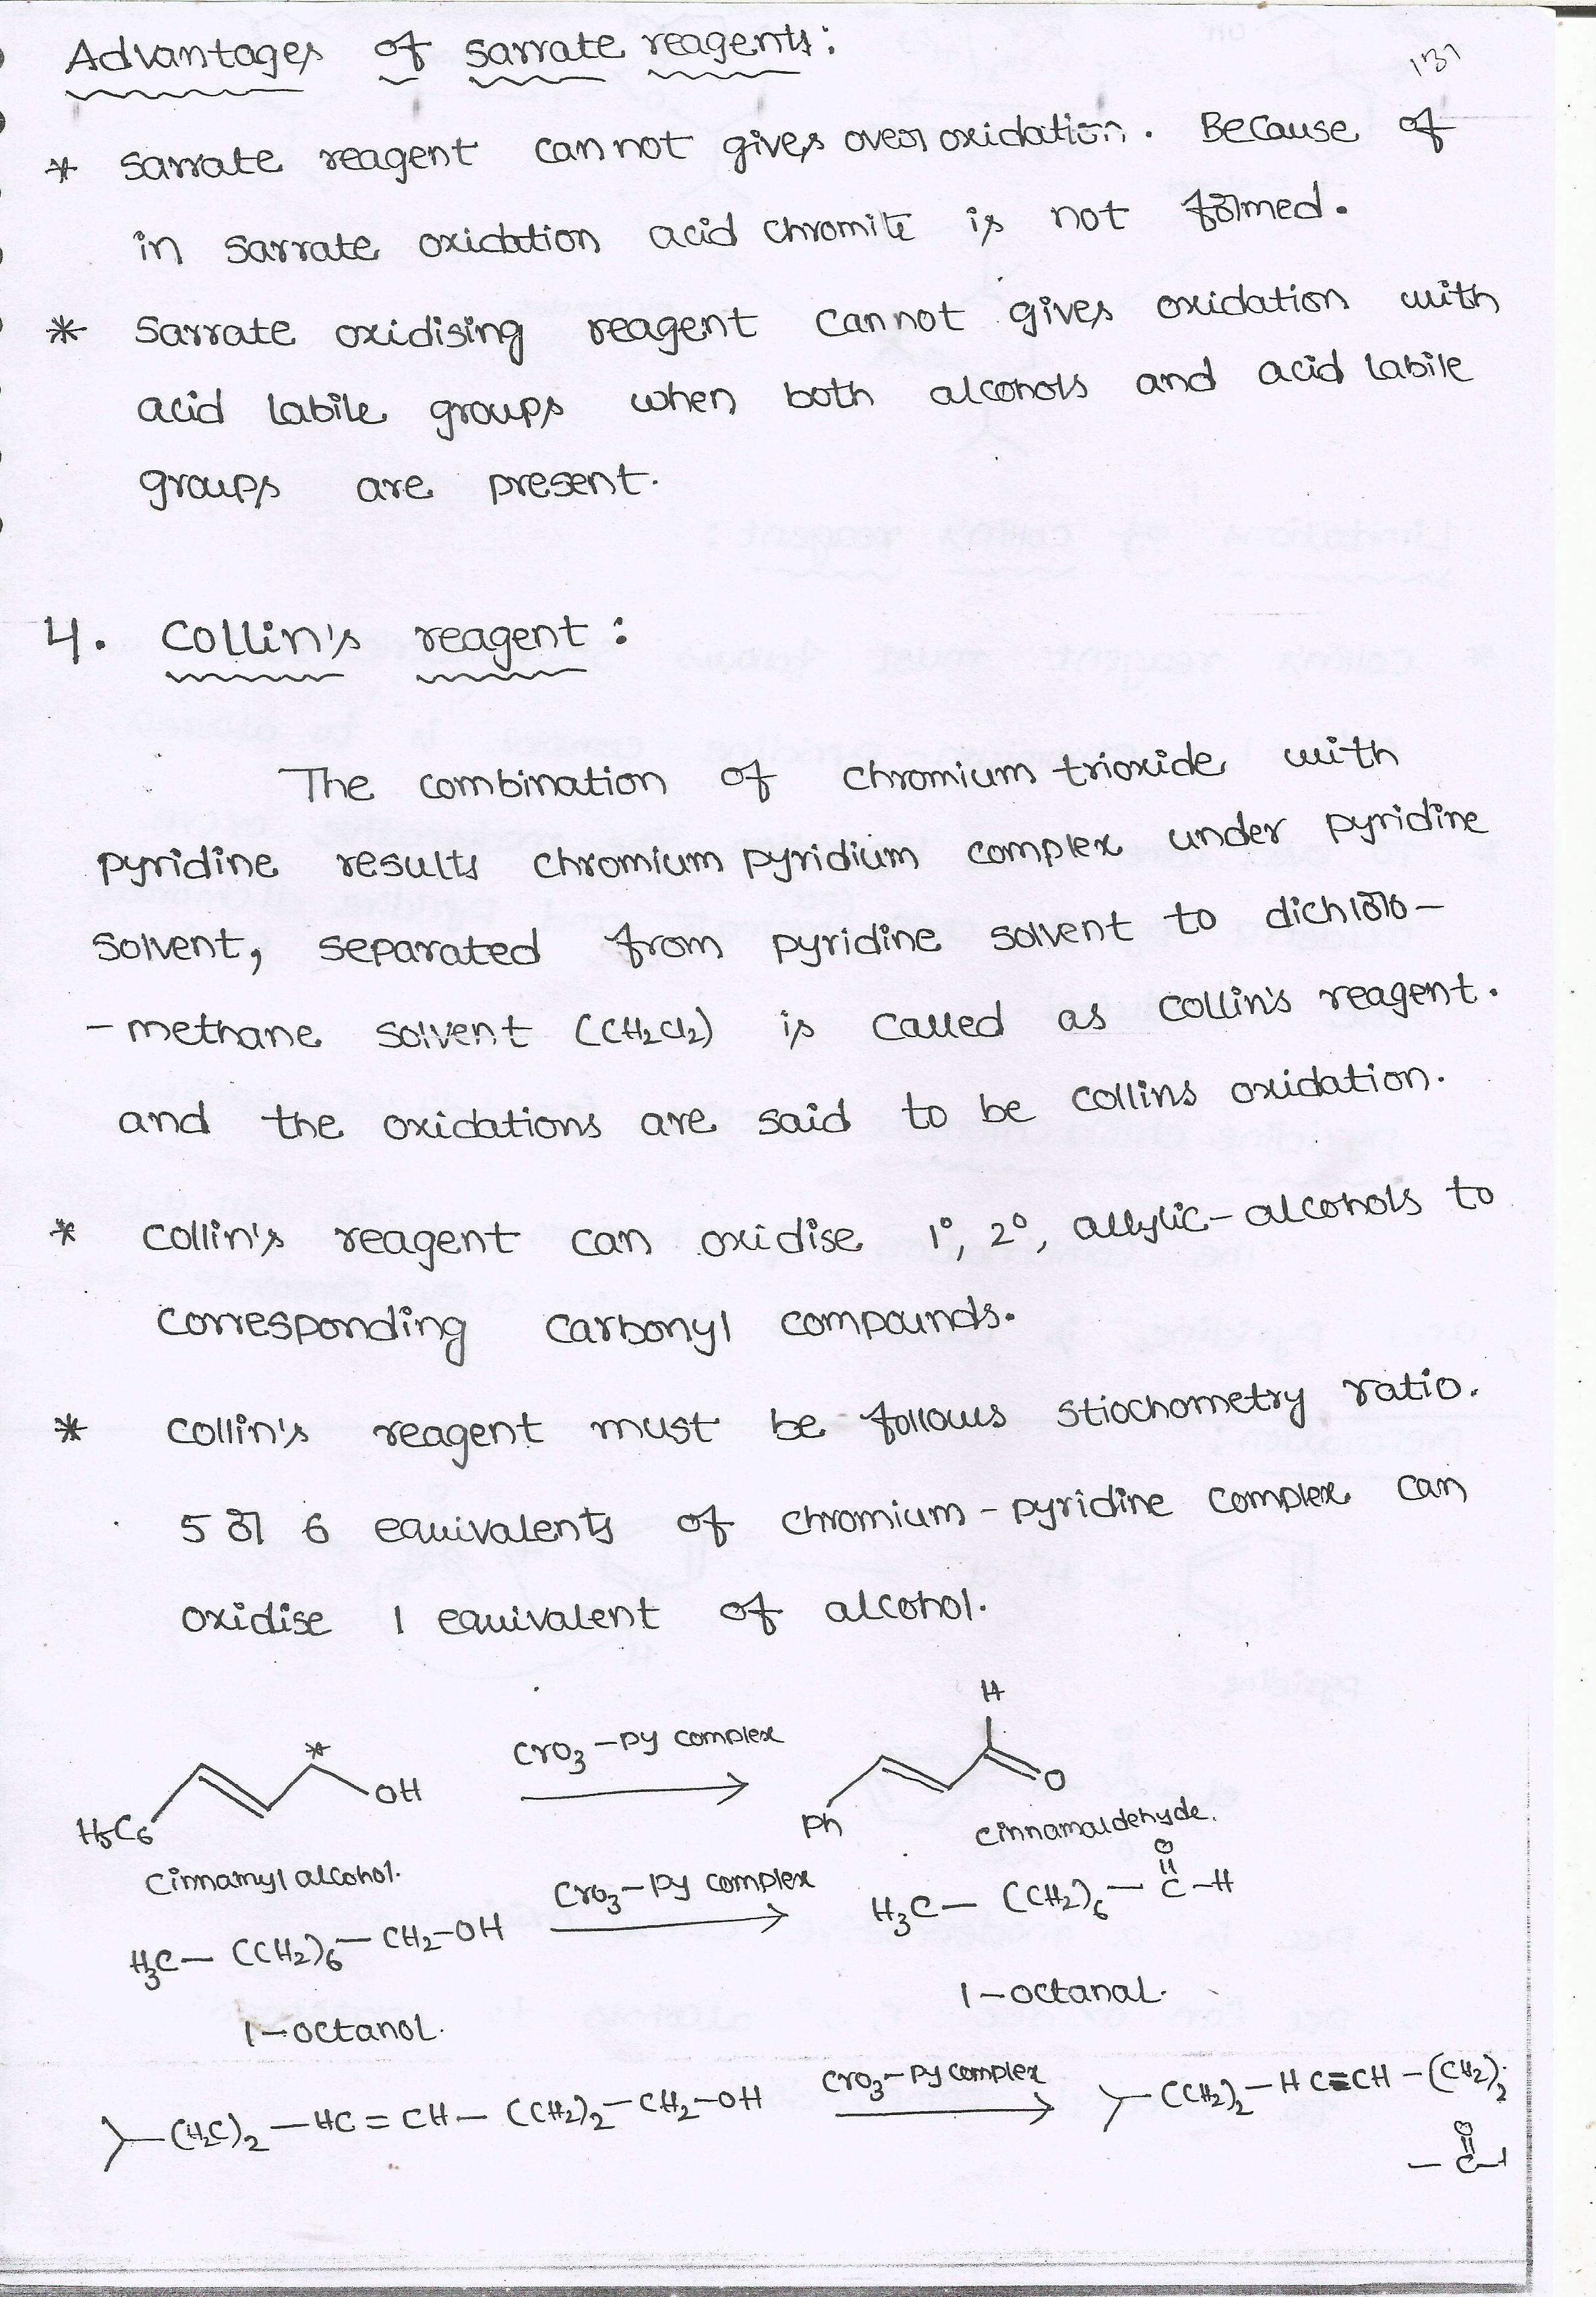 Advantages of sarrate reagents:
131
* sarrate reagent can not gives over oxidation. Because of
in sarrate oxidation acid chromite is not formed.
* Sarrate oxidising reagent cannot gives oxidation with
acid labile groups when both alcohols and acid labile
groups are present.
4. Collin's reagent:
The combination of chromium trioxide with
pyridine results chromium pyridium complex under pyridine
solvent, separated from pyridine solvent to dichloro-
-methane solvent (CH2Cl2) is called as collin's reagent.
and the oxidations are said to be collins oxidation.
* collin's reagent can oxidise 1°, 2°, allylic-alcohols to
corresponding carbonyl compounds.
* collin's reagent must be follows stiochometry ratio.
5 or 6 equivalents of chromium-pyridine complex can
oxidise 1 equivalent of alcohol.
H5C6 * OH CrO3-py complex Ph H O
Cinnamyl alcohol. cinnamaldehyde.
H3C-(CH2)6-CH2-OH CrO3-py complex H3C-(CH2)6-C-H
O
1-octanol. 1-octanal.
-(H2C)2-HC=CH-(CH2)2-CH2-OH CrO3-py complex -(CH2)2-HC=CH-(CH2)2
O
-C-